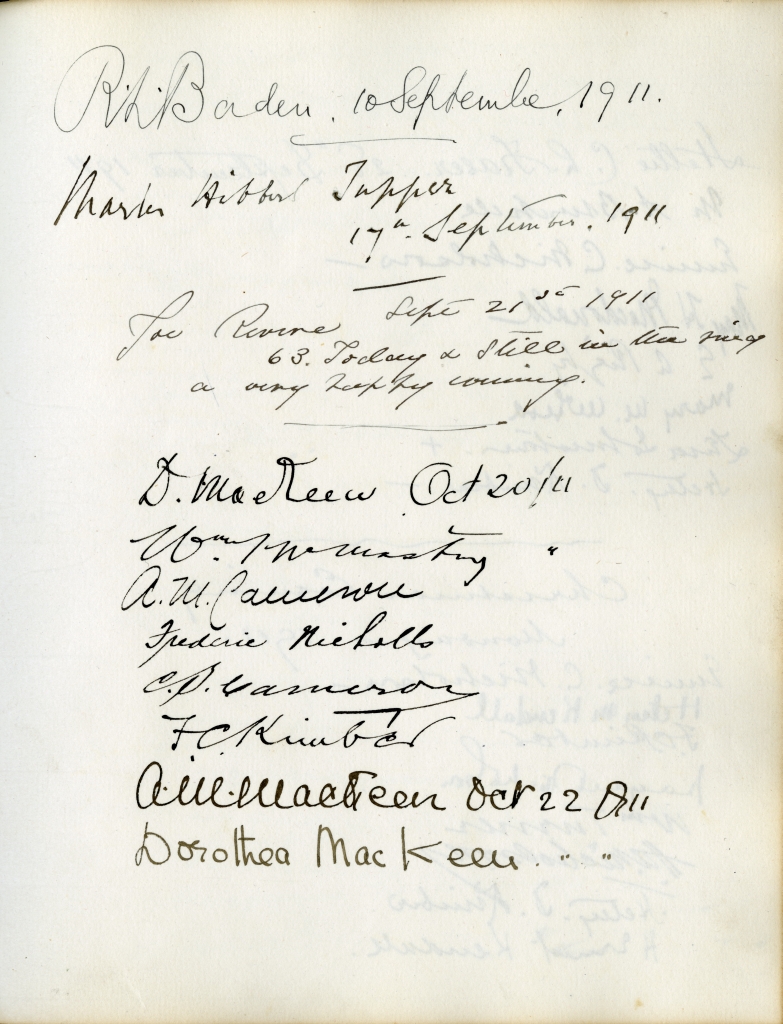 R. L. Borden. 10 September, 1911.
Hibbert Tupper
17th September. 1911
Joe Sept 21st 1911
63. Today & Still in the ring
a very happy evening.
D. MacKeen Oct 20/11
Wm. "
A. M. Cameron
Frederic Nicholls
C. S. Cameron
F C Kimber
A. M. MacKeen Oct 22 /11
Dorothea MacKeen. " "